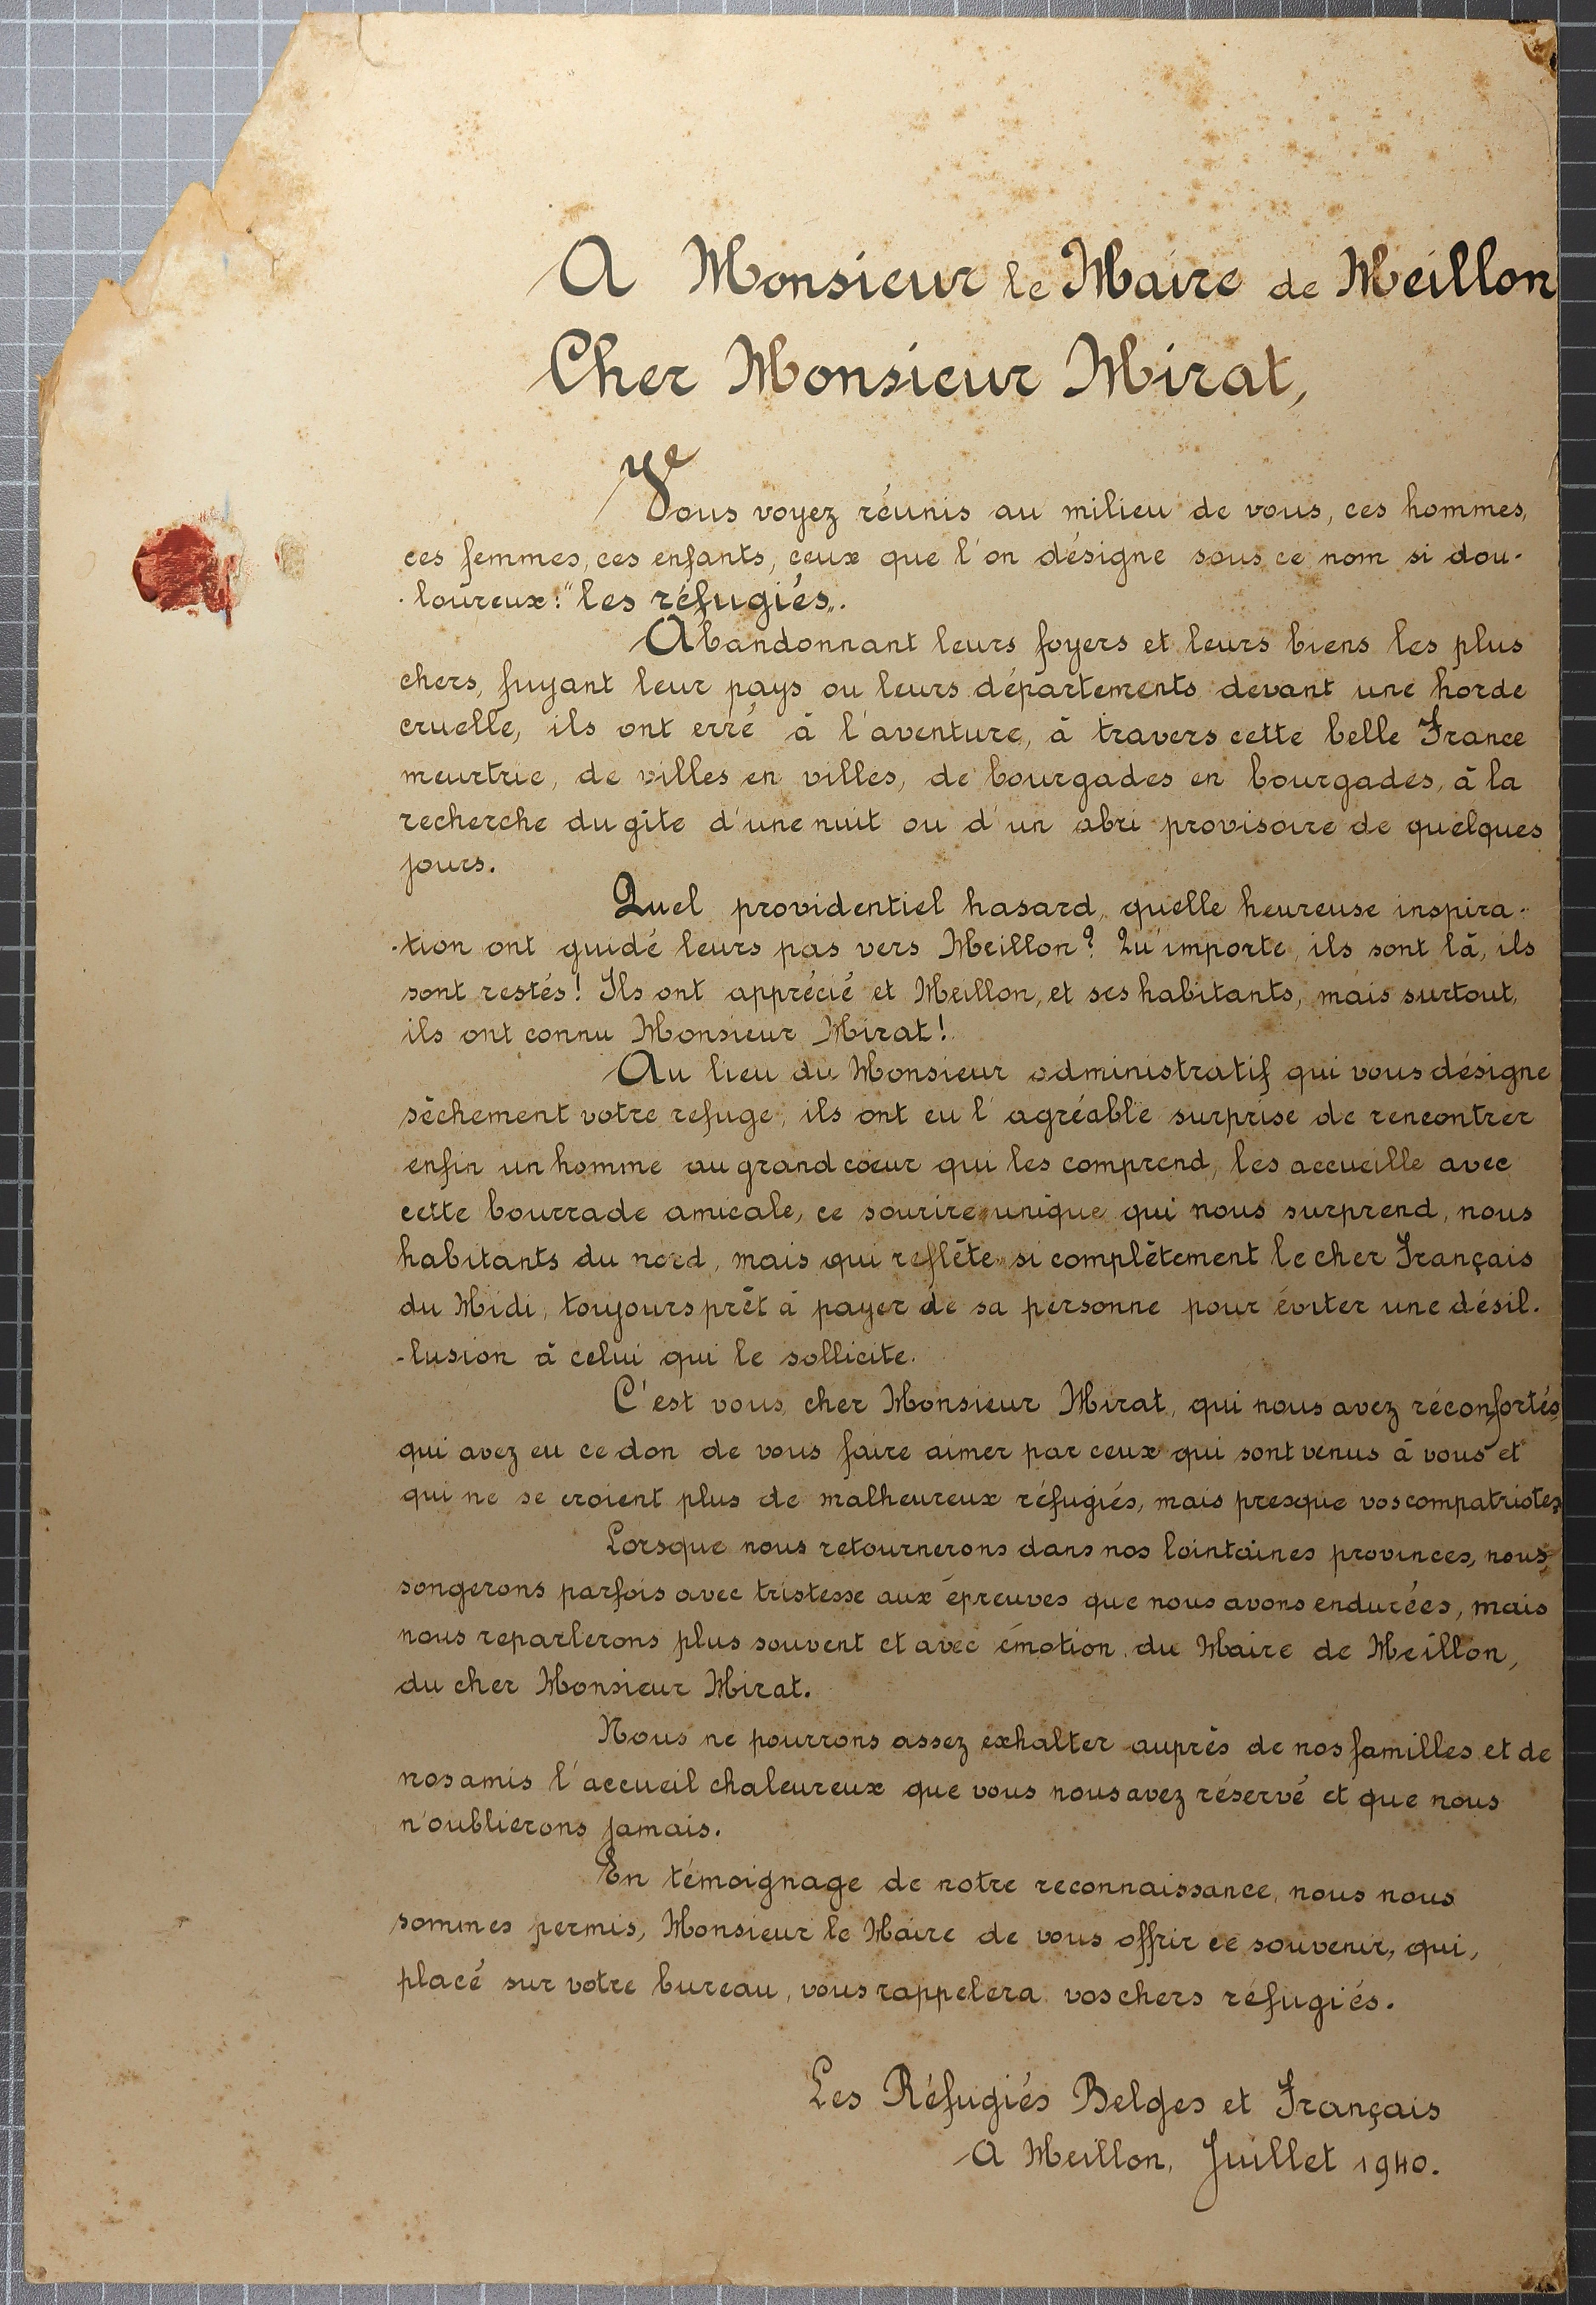 A Monsieur le Maire de Meillon
Cher Monsieur Mirat,
Vous voyez réunis au milieu de vous, ces hommes,
ces femmes, ces enfants, ceux que l'on désigne sous ce nom si dou-
-loureux: "les réfugiés".
Abandonnant leurs foyers et leurs biens les plus
chers, fuyant leur pays ou leurs départements devant une horde
cruelle, ils ont erré à l'aventure, à travers cette belle France
meurtrie, de villes en villes, de bourgades en bourgades, à la
recherche du gîte d'une nuit ou d'un abri provisoire de quelques
jours.
Quel providentiel hasard, quelle heureuse inspira-
-tion ont guidé leurs pas vers Meillon? Qu'importe, ils sont là, ils
sont restés! Ils ont apprécié et Meillon, et ses habitants, mais surtout,
ils ont connu Monsieur Mirat!
Au lieu du Monsieur administratif qui vous désigne
sèchement votre refuge, ils ont eu l'agréable surprise de rencontrer
enfin un homme au grand coeur qui les comprend, les accueille avec
cette bourrade amicale, ce sourire unique qui nous surprend, nous
habitants du nord, mais qui reflète si complètement le cher Français
du Midi, toujours prêt à payer de sa personne pour éviter une désil-
-lusion à celui qui le sollicite.
C'est vous, cher Monsieur Mirat, qui nous avez réconfortés,
qui avez eu ce don de vous faire aimer par ceux qui sont venus à vous et
qui ne se croient plus de malheureux réfugiés, mais presque vos compatriotes.
Lorsque nous retournerons dans nos lointaines provinces, nous
songerons parfois avec tristesse aux épreuves que nous avons endurées, mais
nous reparlerons plus souvent et avec émotion du Maire de Meillon,
du cher Monsieur Mirat.
Nous ne pourrons assez exhalter auprès de nos familles et de
nos amis l'accueil chaleureux que vous nous avez réservé et que nous
n'oublierons jamais.
En témoignage de notre reconnaissance, nous nous
sommes permis, Monsieur le Maire de vous offrir ce souvenir, qui,
placé sur votre bureau, vous rappelera vos chers réfugiés.
Les Réfugiés Belges et Français
A Meillon, Juillet 1940.